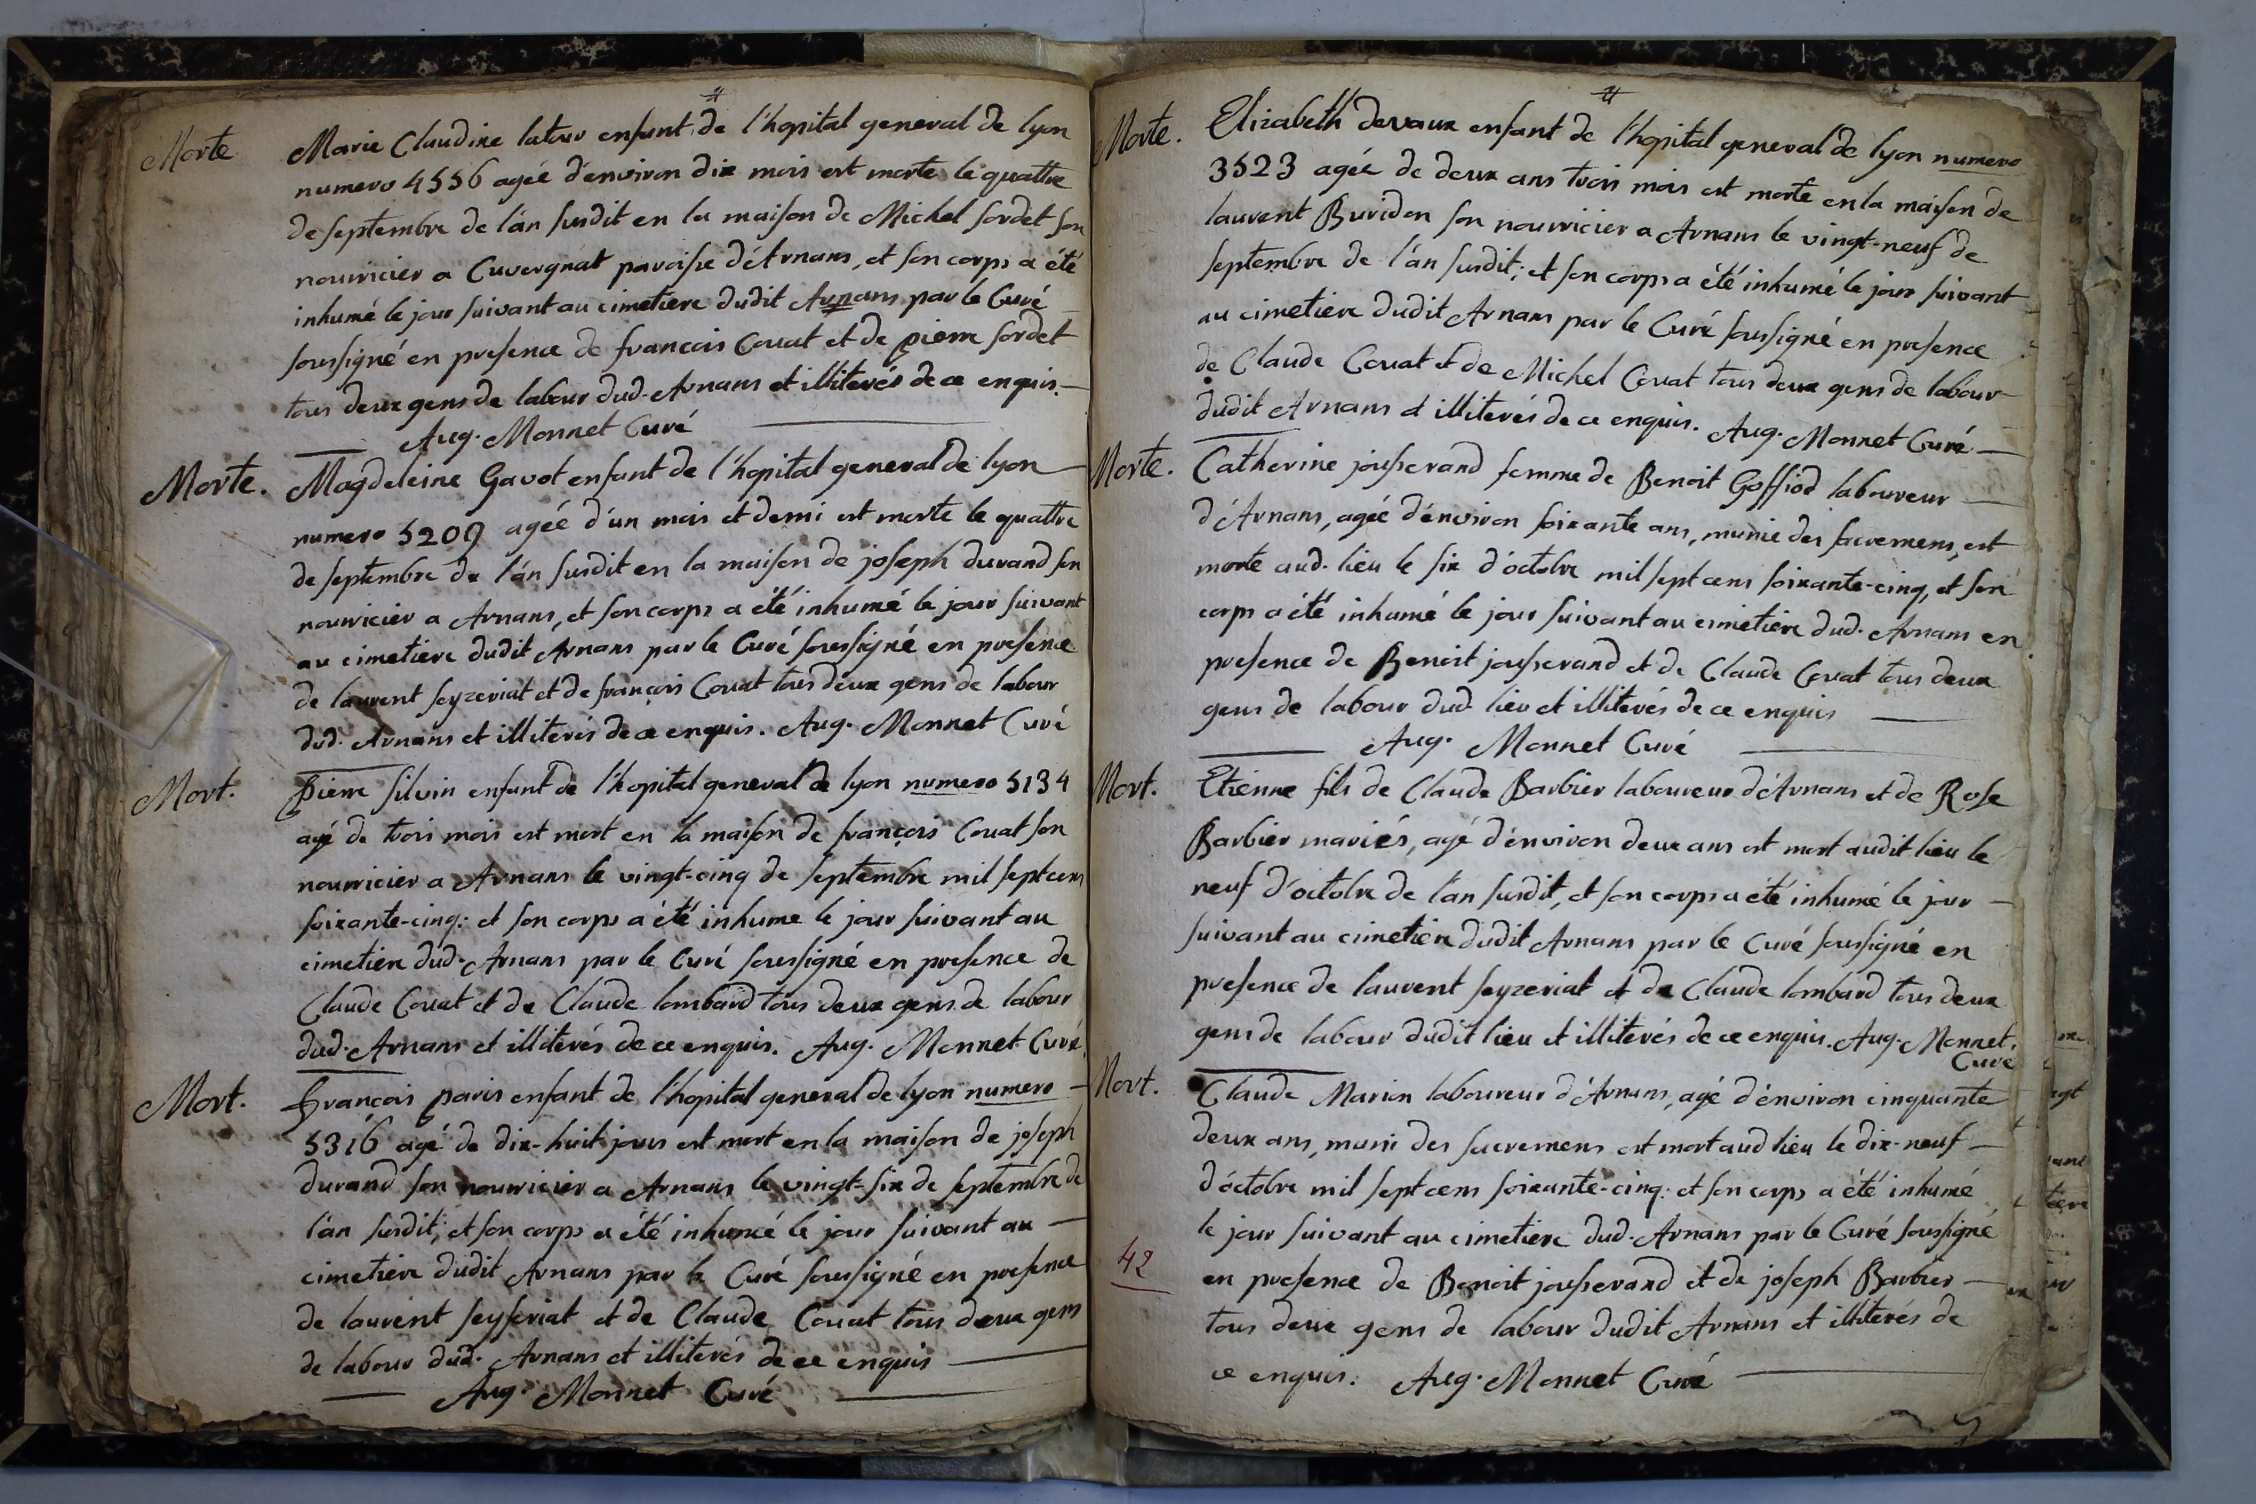 Morte
Marie Claudine latour enfant de l'hopital general de lyon
numero 4556 agéé d'environ dix mois est morte le quattre
de septembre de l'an susdit en la maison de Michel sordet son
nourricier a Cuvergnat paroisse d'Arnans, et son corps a été
inhumé le jour suivant au cimetiere dudit Arnans par le Curé
soussigné en presence de françois Couat et de pierre sordet
tous deux gens de labour dud. Arnans et illiterés de ce enquis.
Aug. Monnet Curé
Morte.
Magdeleine Gavot enfant de l'hopital general de lyon
numero 5209 agéé d'un mois et demi est morte le quattre
de septembre de l'an susdit en la maison de joseph durand son
nourricier a Arnans, et son corps a été inhumé le jour suivant
au cimetiere dudit Arnans par le Curé soussigné en presence
de laurent seyzeriat et de françois Couat tous deux gens de labour
dud. Arnans et illiterés de ce enquis. Aug. Monnet Curé
Mort.
Pierre silvin enfant de l'hopital general de lyon numero 5134
agé de trois mois est mort en la maison de françois Couat son
nourricier a Arnans le vingt-cinq de septembre mil sept cens
soixante-cinq: et son corps a été inhume le jour suivant au
cimetiere dud. Arnans par le Curé soussigné en presence de
Claude Couat et de Claude lombard tous deux gens de labour
dud. Arnans et illiterés de ce enquis. Aug. Monnet Curé.
Mort.
François paris enfant de l'hopital general de lyon numero
5316 agé de dix-huit jours est mort en la maison de joseph
durand son nourricier a Arnans le vingt-six de septembre de
l'an susdit; et son corps a été inhumé le jour suivant au
cimetiere dudit Arnans par le Curé soussigné en presence
de laurent seyseriat et de Claude Couat tous deux gens
de labour dud. Arnans et illiterés de ce enquis
Aug. Monnet Curé
Morte.
Elizabeth devaux enfant de l'hopital general de lyon numero
3523 agéé de deux ans trois mois est morte en la maison de
laurent Buridon son nourricier a Arnans le vingt-neuf de
septembre de l'an susdit; et son corps a été inhumé le jour suivant
au cimetiere dudit Arnans par le Curé soussigné en presence
de Claude Couat et de Michel Couat tous deux gens de labour
dudit Arnans et illiterés de ce enquis. Aug. Monnet Curé
Morte.
Catherine jousserand femme de Benoit Goffiod laboureur
d'Arnans, agéé d'environ soixante ans, munie des sacremens, est
morte aud. lieu le six d'octobre mil sept cens soixante-cinq, et son
corps a été inhumé le jour suivant au cimetiere dud. Arnans en
presence de Benoit jousserand et de Claude Couat tous deux
gens de labour dud. lieu et illiterés de ce enquis
Aug. Monnet Curé
Mort.
Etienne fils de Claude Barbier laboureur d'Arnans et de Rose
Barbier mariés, agé d'environ deux ans est mort audit lieu le
neuf d'octobre de l'an susdit, et son corps a été inhumé le jour
suivant au cimetiere dudit Arnans par le Curé soussigné en
presence de laurent seyzeriat et de Claude lombard tous deux
gens de labour dudit lieu et illiterés de ce enquis. Aug. Monnet.
Curé
Mort.
Claude Marion laboureur d'Arnans, agé d'environ cinquante
deux ans, muni des sacremens est mort aud lieu le dix-neuf
d'octobre mil sept cens soixante-cinq: et son corps a été inhumé
le jour suivant au cimetiere dud. Arnans par le Curé soussigné
42
en presence de Benoit jousserand et de joseph Barbier
tous deux gens de labour dudit Arnans et illiterés de
ce enquis. Aug. Monnet Curé